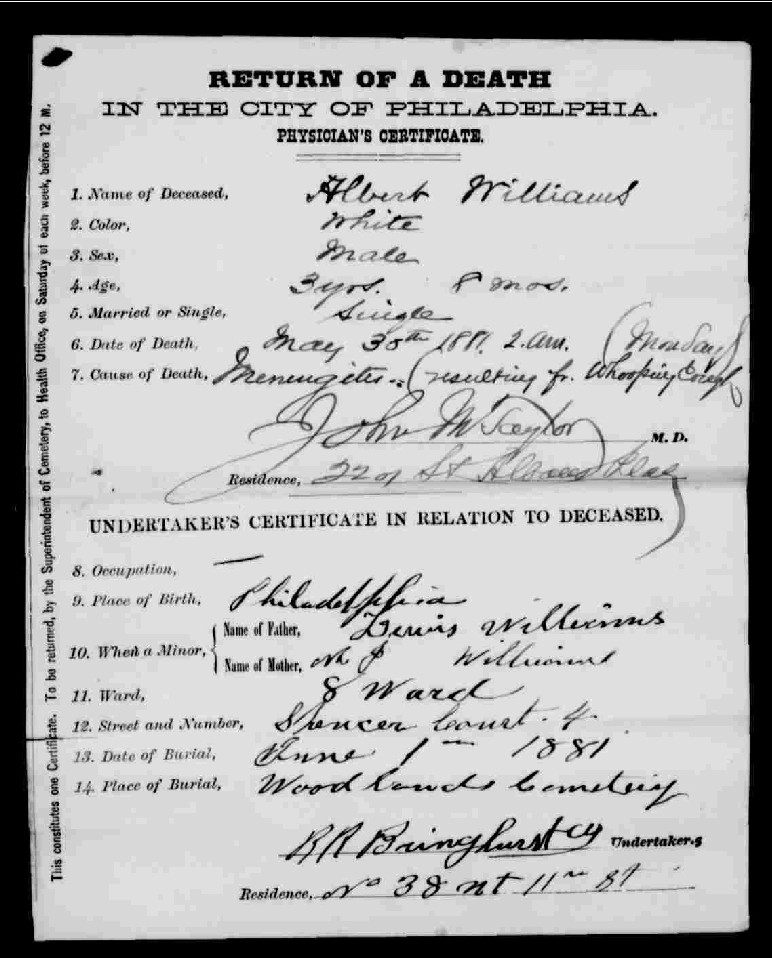 RETURN OF A DEATH
IN THE CITY OF PHILADELPHIA.
PHYSICIAN'S CERTIFICATE.
1. Name of Deceased, Albert Williams
2. Color, White
3. Sex, Male
4. Age, 3 yrs. 8 mos.
5. Married or Single, Single
6. Date of Death, May 30th 1881. 2. am. (Monday)
7. Cause of Death, Meningitis (resulting fr. Whooping Cough)
John M Taylor M. D.
Residence, 22 St Albans Place
UNDERTAKER'S CERTIFICATE IN RELATION TO DECEASED.
8. Occupation, —
9. Place of Birth, Philadelphia
10. When a Minor, { Name of Father, Lewis Williams
Name of Mother, Williams
11. Ward, 8 Ward
12. Street and Number, Spencer Court. 4
13. Date of Burial, June 1 1881
14. Place of Burial, Woodlands Cemetery
R R Bringhurst Co Undertakers
Residence, No 38 Nt 11 St
This constitutes one Certificate. To be returned, by the Superintendent of Cemetery, to Health Office, on Saturday of each week, before 12 M.